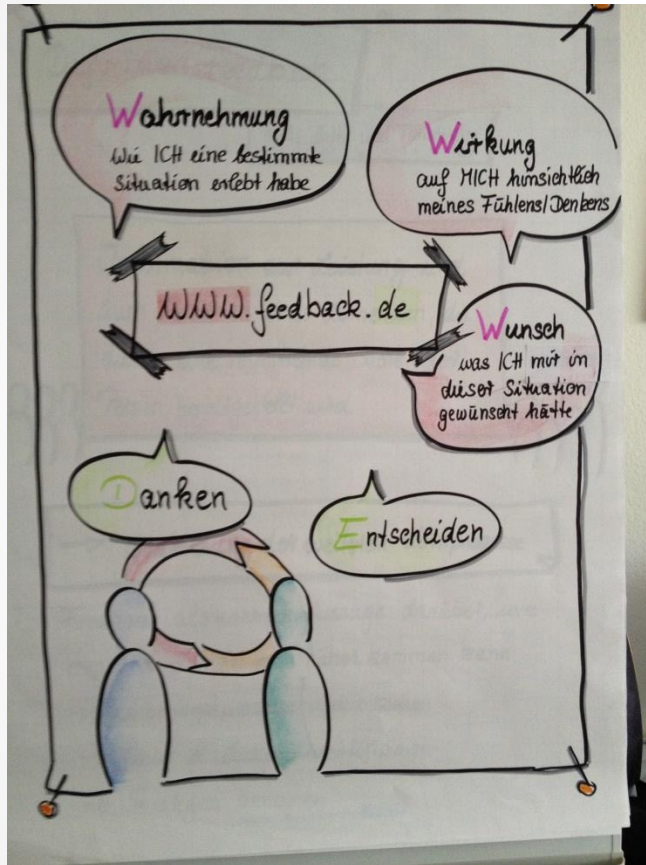 Wahrnehmung
Wie ICH eine bestimmte
Situation erlebt habe
Wirkung
auf MICH hinsichtlich
meines Fühlens/Denkens
WWW.feedback.de
Wunsch
was ICH mir in
dieser Situation
gewünscht hätte
Danken
Entscheiden